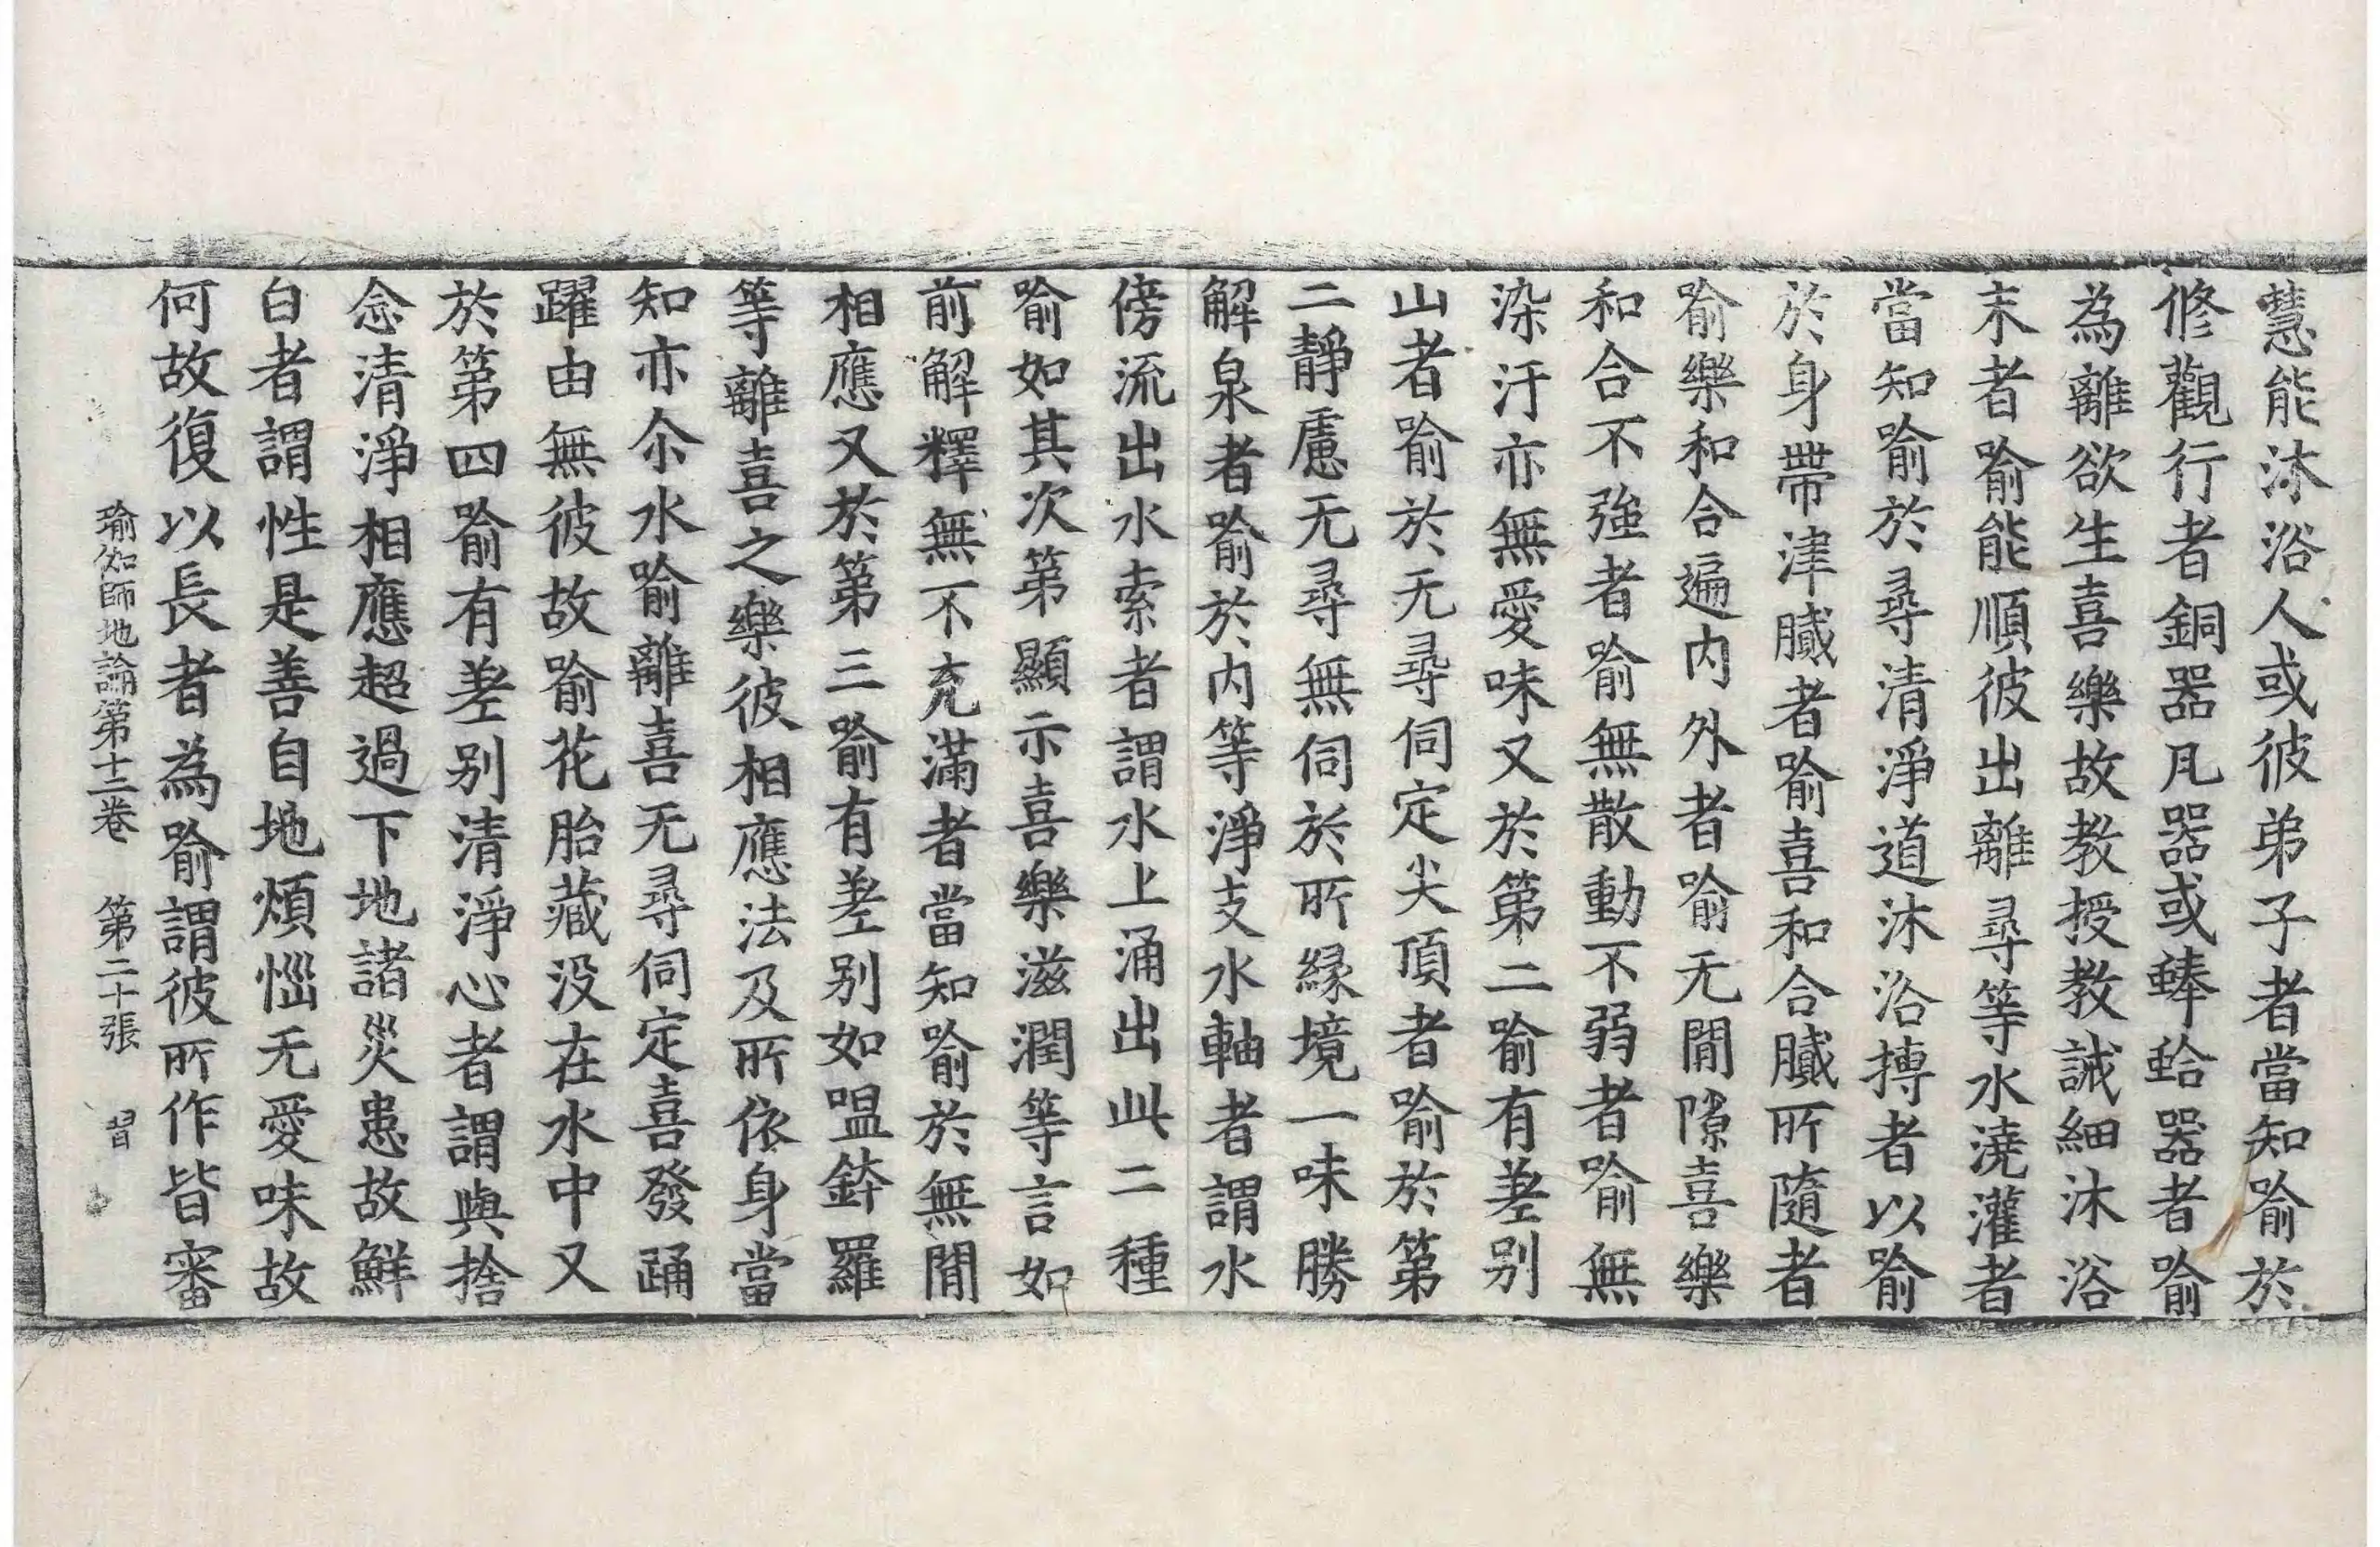 慧能沐浴人或彼弟子者當知喻於
修觀行者銅器凡器或蜯蛤器者喻
為離欲生喜樂故教授教誡細沐浴
末者喻能順彼出離尋等水澆灌者
當知喻於尋清淨道沐浴摶者以喻
於身帶津膩者喻喜和合膩所隨者
喻樂和合遍内外者喻无閒隙喜樂
和合不強者喻無散動不弱者喻無
染汙亦無愛味又於第二喻有差别
山者喻於无尋伺定尖頂者喻於第
二靜慮无尋無伺於所緣境一味勝
解泉者喻於内等淨支水軸者謂水
傍流出水索者謂水上涌出此二種
喻如其次第顯示喜樂滋潤等言如
前解釋無不充滿者當知喻於無閒
相應又於第三喻有差别如嗢鉢羅
等離喜之樂彼相應法及所依身當
知亦尒水喻離喜无尋伺定喜發踊
躍由無彼故喻花胎藏没在水中又
於第四喻有差别清淨心者謂與捨
念清淨相應超過下地諸災患故鮮
白者謂性是善自地煩惱无愛味故
何故復以長者為喻謂彼所作皆審
瑜伽師地論第十二卷 第二十張 習